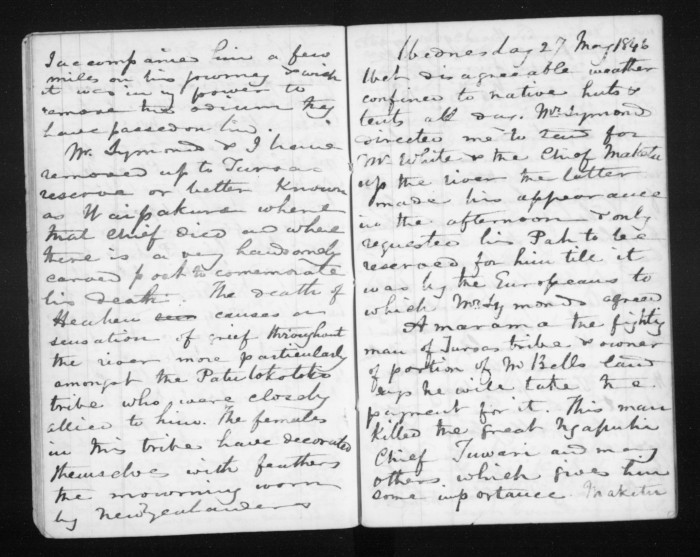 I accompanied him a few
miles on his journey & wish
it was in my power to
remove the odium they
have passed on him.
Mr. Symond & I have
removed up to Turoa
reserve or better known
as Waipakura where
that chief died and where
there is a very handsomely
carved post to comemorate
his death. The death of
Heaheu causes a
sensation of grief throughout
the river more particularly
amongst the Patutokotoko
tribe who were closely
allied to him. The females
in this tribe have decorated
themselves with feathers
the mourning worn
by Newzealanders
Wednesday 27 May 1846
Wet disagreeable weather
confined to native huts &
tents all day. Mr Symond
directed me to send for
Mr White & the Chief Maketu
up the river the latter
made his appearance
in the afternoon & only
requested his Pah to be
reserved for him till it
was by the Europeans to
which Mr Symonds agreed
Amarama the fighting
man of Turoas tribe & owner
of portion of Mr Bells land
says he will take the
payment for it. This man
killed the great Ngapuhi
Chief Tuwari and many
others which gives him
some importance Maketu